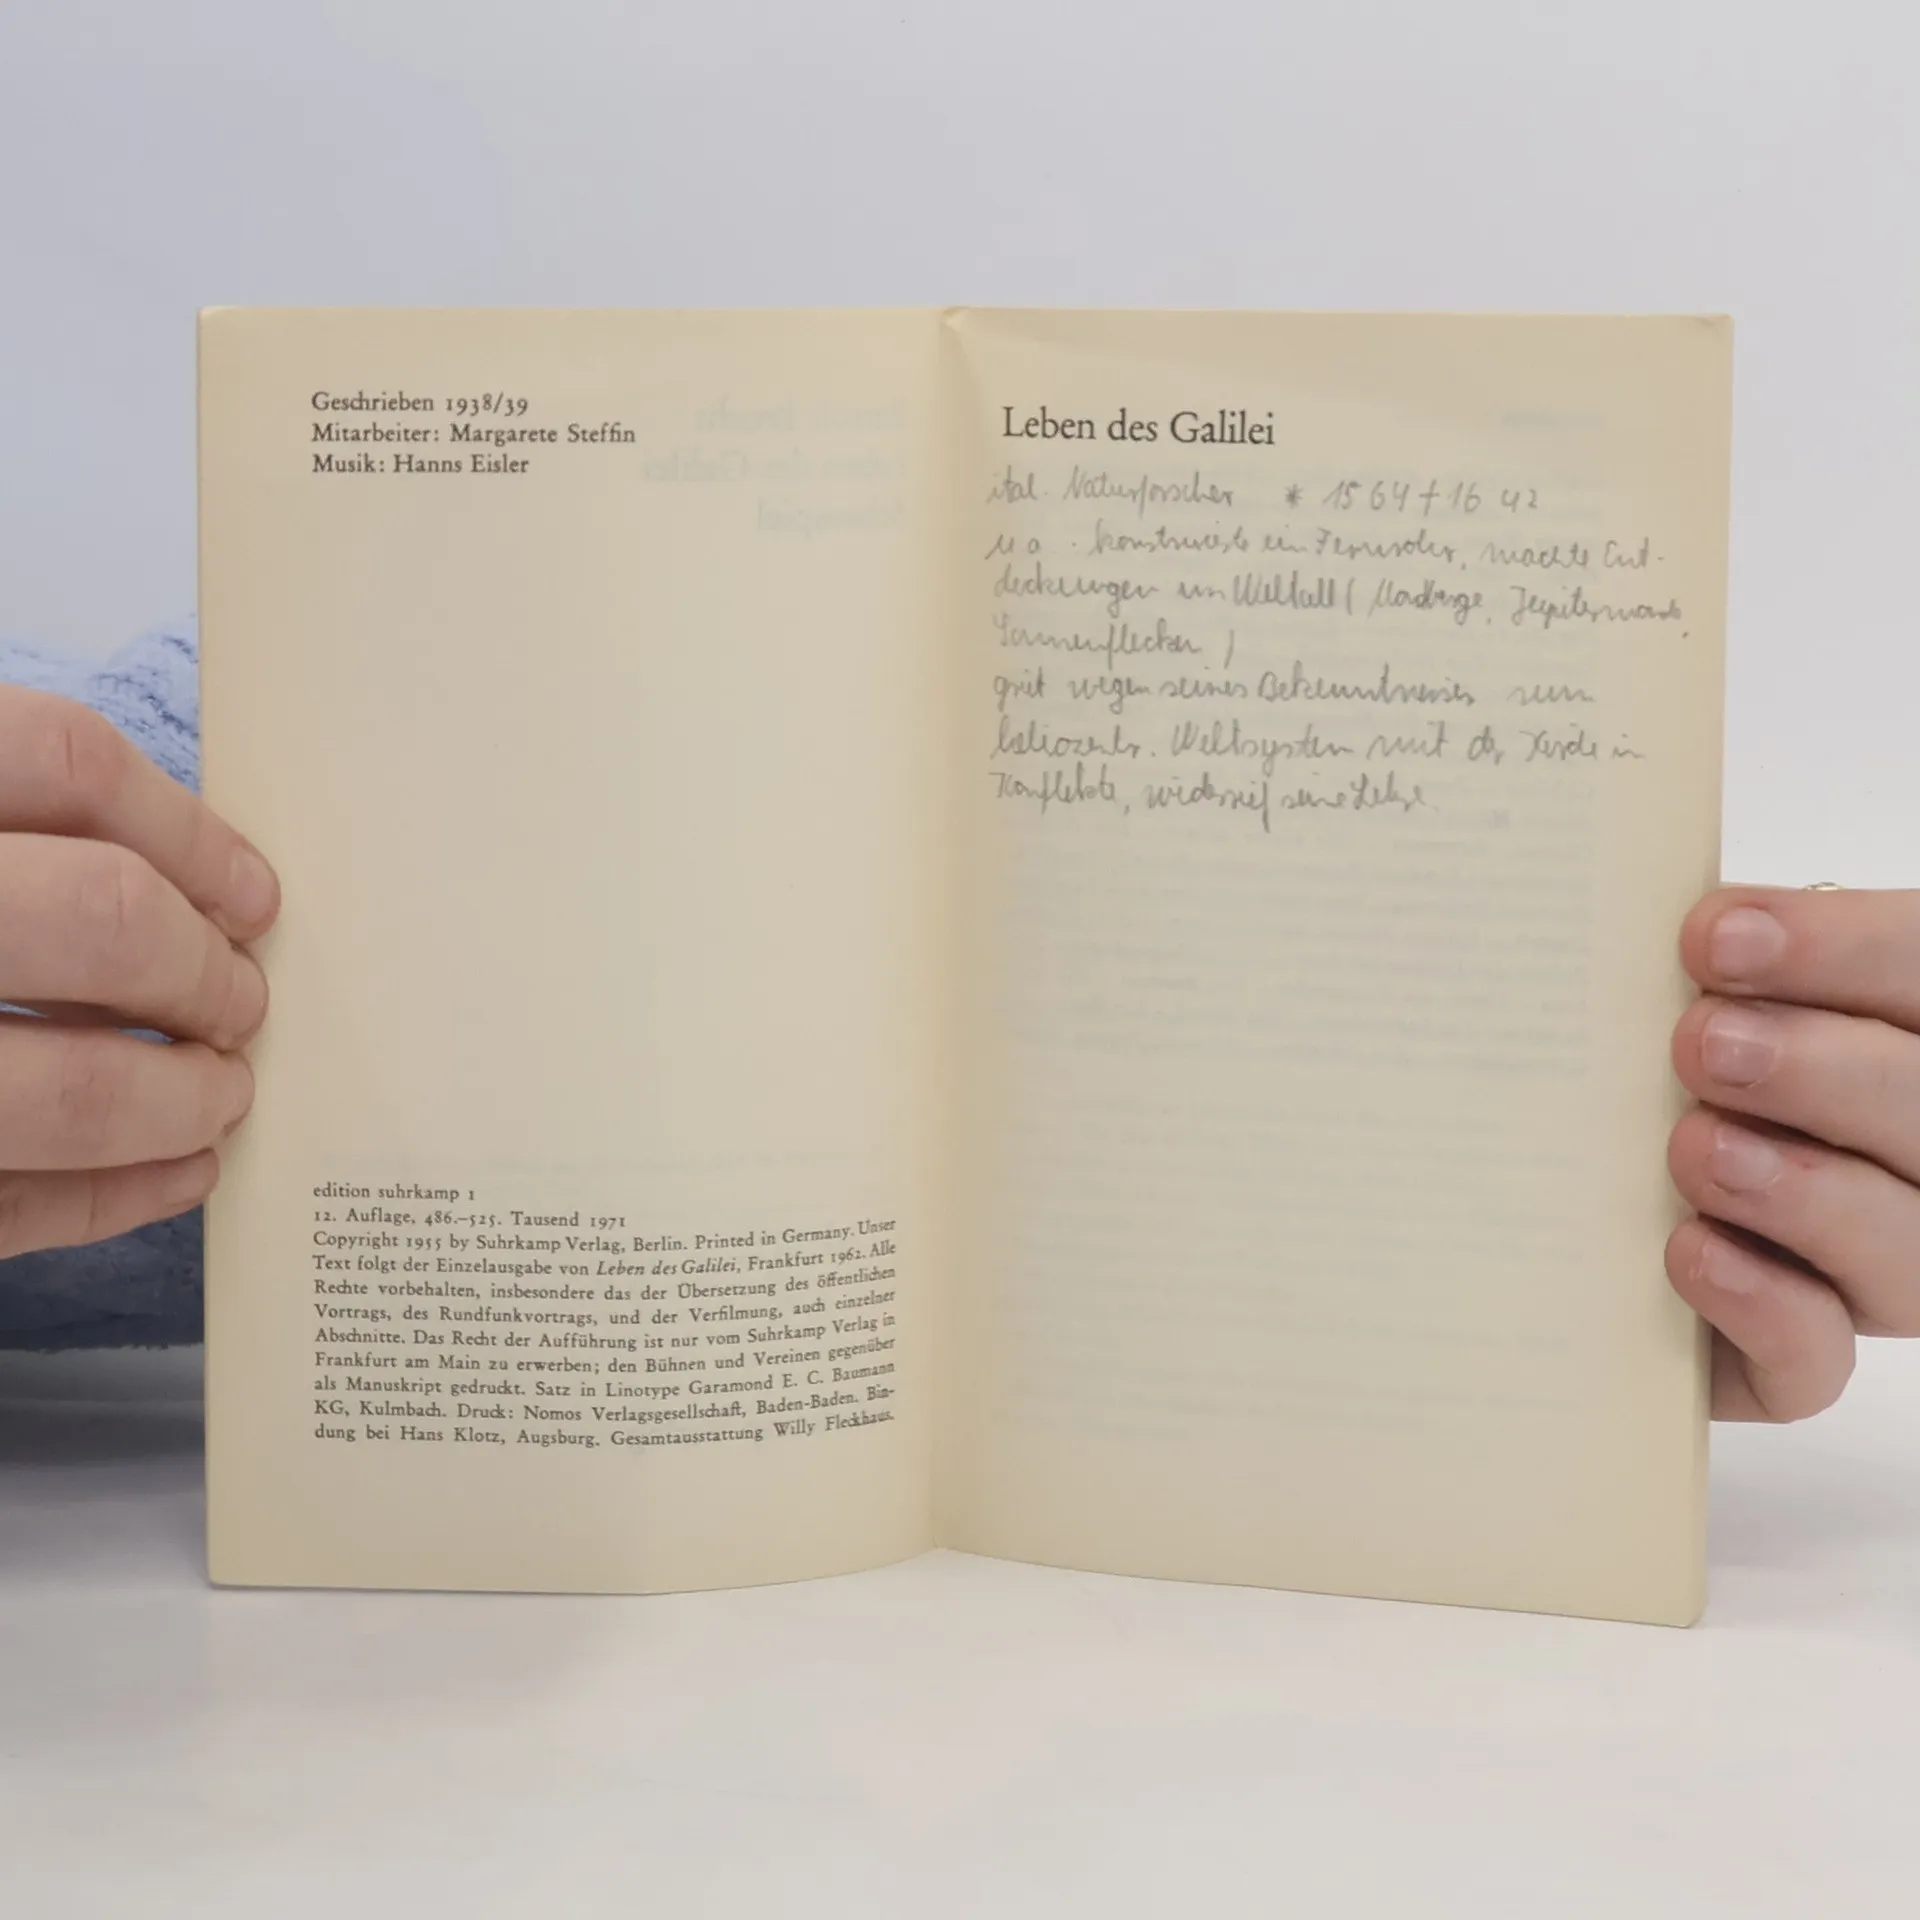 Geschrieben 1938/39
Mitarbeiter: Margarete Steffin
Musik: Hanns Eisler
edition suhrkamp 1
12. Auflage, 486.–525. Tausend 1971
Copyright 1955 by Suhrkamp Verlag, Berlin. Printed in Germany. Unser
Text folgt der Einzelausgabe von Leben des Galilei, Frankfurt 1962. Alle
Rechte vorbehalten, insbesondere das der Übersetzung des öffentlichen
Vortrags, des Rundfunkvortrags, und der Verfilmung, auch einzelner
Abschnitte. Das Recht der Aufführung ist nur vom Suhrkamp Verlag in
Frankfurt am Main zu erwerben; den Bühnen und Vereinen gegenüber
als Manuskript gedruckt. Satz in Linotype Garamond E. C. Baumann
KG, Kulmbach. Druck: Nomos Verlagsgesellschaft, Baden-Baden. Bin-
dung bei Hans Klotz, Augsburg. Gesamtausstattung Willy Fleckhaus.
Leben des Galilei
ital. Naturforscher * 1564 + 1642
u a. konstruierte ein Fernrohr, machte Ent-
deckungen im Weltall (Mondberge, Jupitermonde,
Sonnenflecken)
geriet wegen seines Bekenntnisses zum
heliozentr. Weltsystem mit der Kirche in
Konflikte, widerrief seine Lehre.